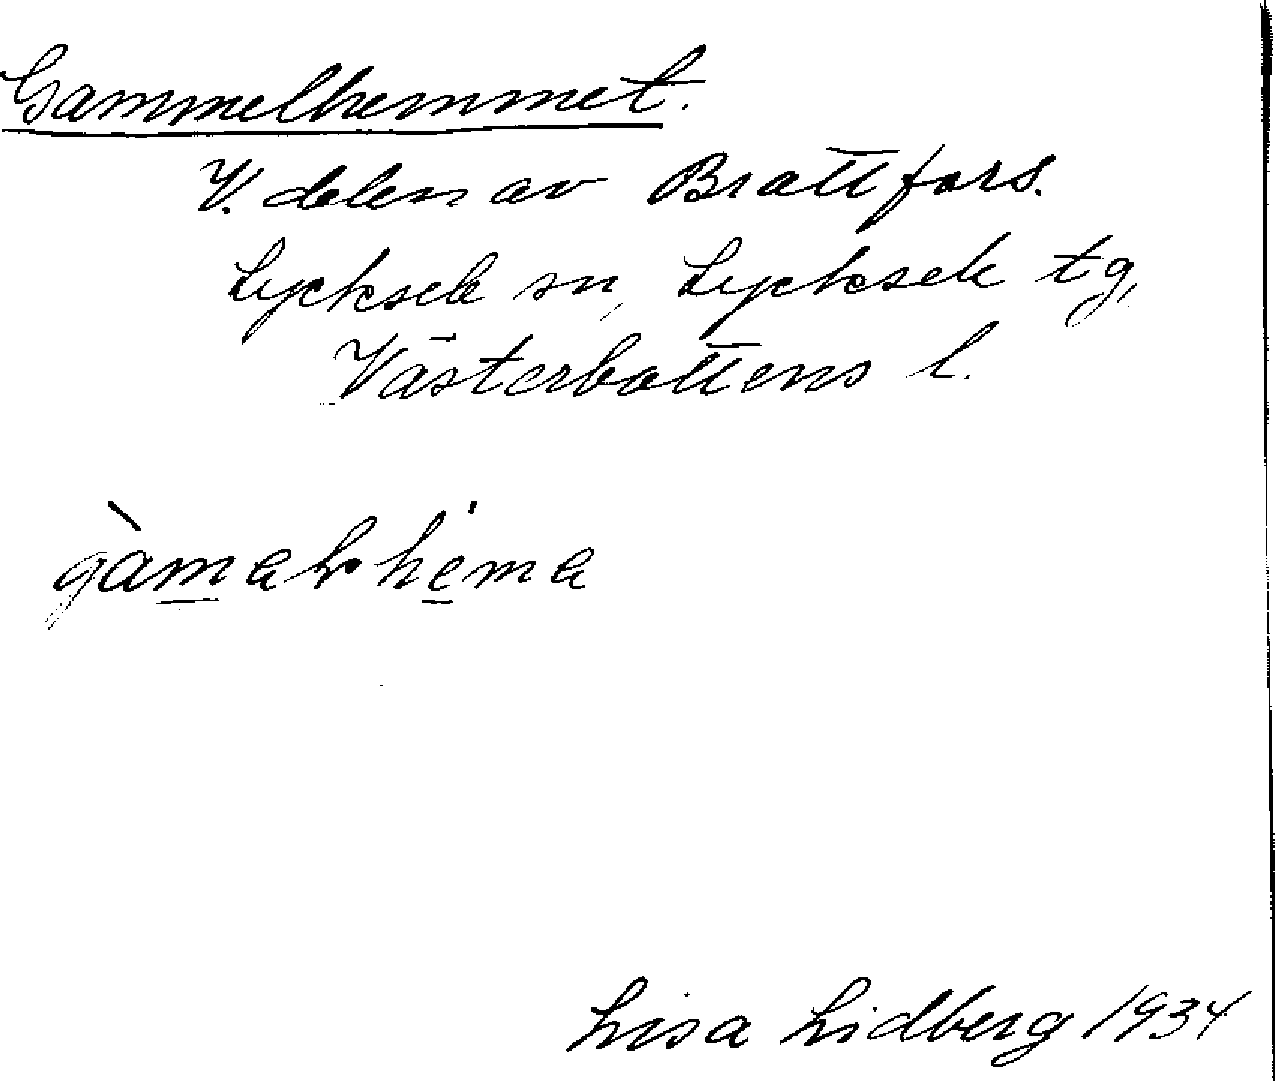 Gammelhemmet.
V. delen av Brattfors.
Lycksele sn, Lycksele tg,
Västerbottens l.
Lisa Lidberg 1934